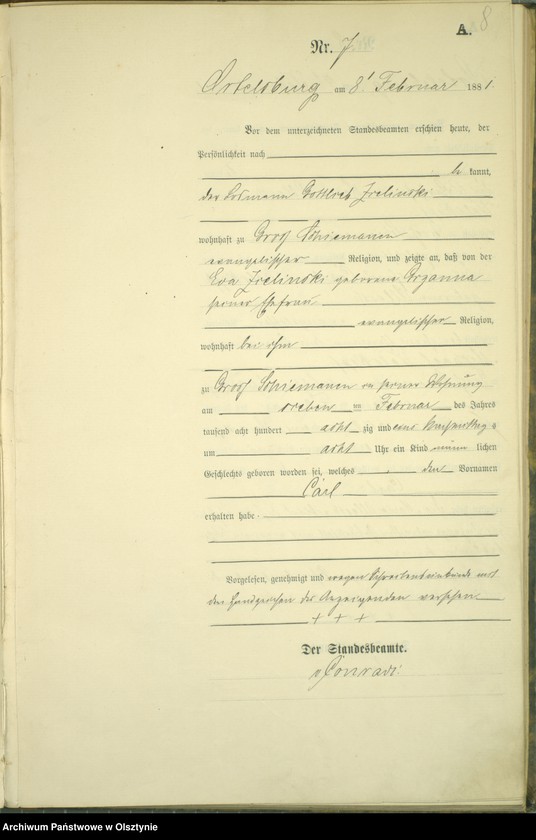 A. 8
Nr. 7
Ortelsburg am 8. Februar 1881.
Vor dem unterzeichneten Standesbeamten erschien heute, der
Persönlichkeit nach
be kannt,
der Losmann Gottlieb Zielinski
wohnhaft zu Gross Schiemanen
evangelischer Religion, und zeigte an, daß von der
Eva Zielinski geborene
seiner Ehefrau
evangelischer Religion,
wohnhaft bei ihm
zu Gross Schiemanen in seiner Wohnung
am sieben ten Februar des Jahres
tausend acht hundert acht zig und eins Nachmittags
um acht Uhr ein Kind männ lichen
Geschlechts geboren worden sei, welches den Vornamen
Carl
erhalten habe.
Vorgelesen, genehmigt und wegen Schreibensunkunde mit
den Handzeichen des Anzeigenden versehen
+ + +
Der Standesbeamte.
v Conradi.
Archiwum Państwowe w Olsztynie